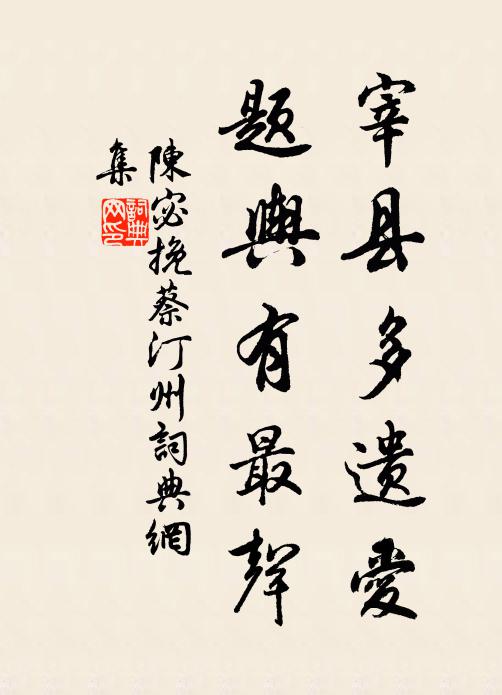 宰县多遗爱
题舆有最声
陳宓挽蔡汀州詞典網
集
詞典网印